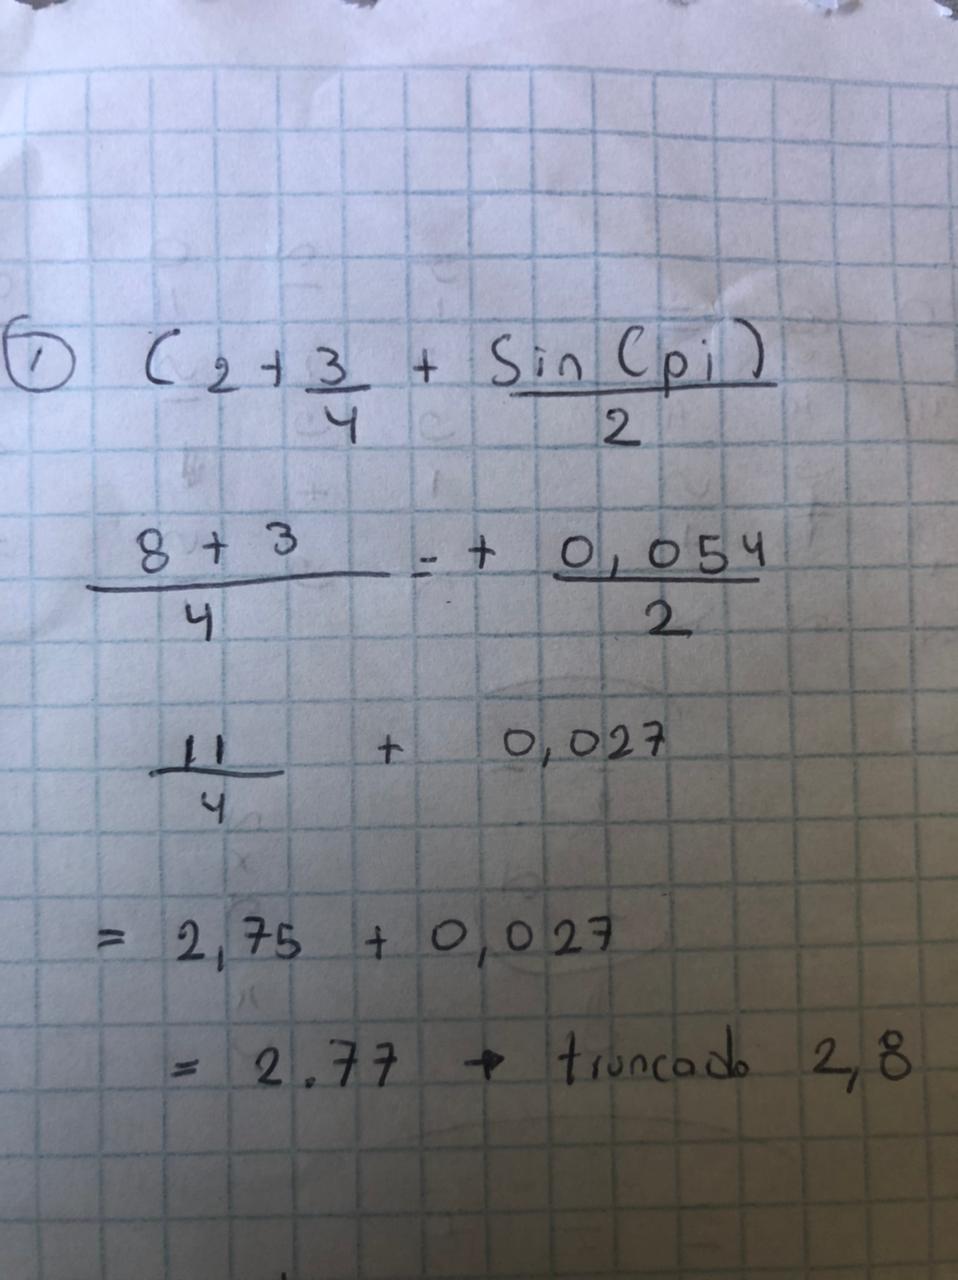 ① ( 2 + 3/4 + Sin (pi)/2
8 + 3/4 = + 0,054/2
11/4 + 0,027
= 2,75 + 0,027
= 2.77 → truncado 2,8